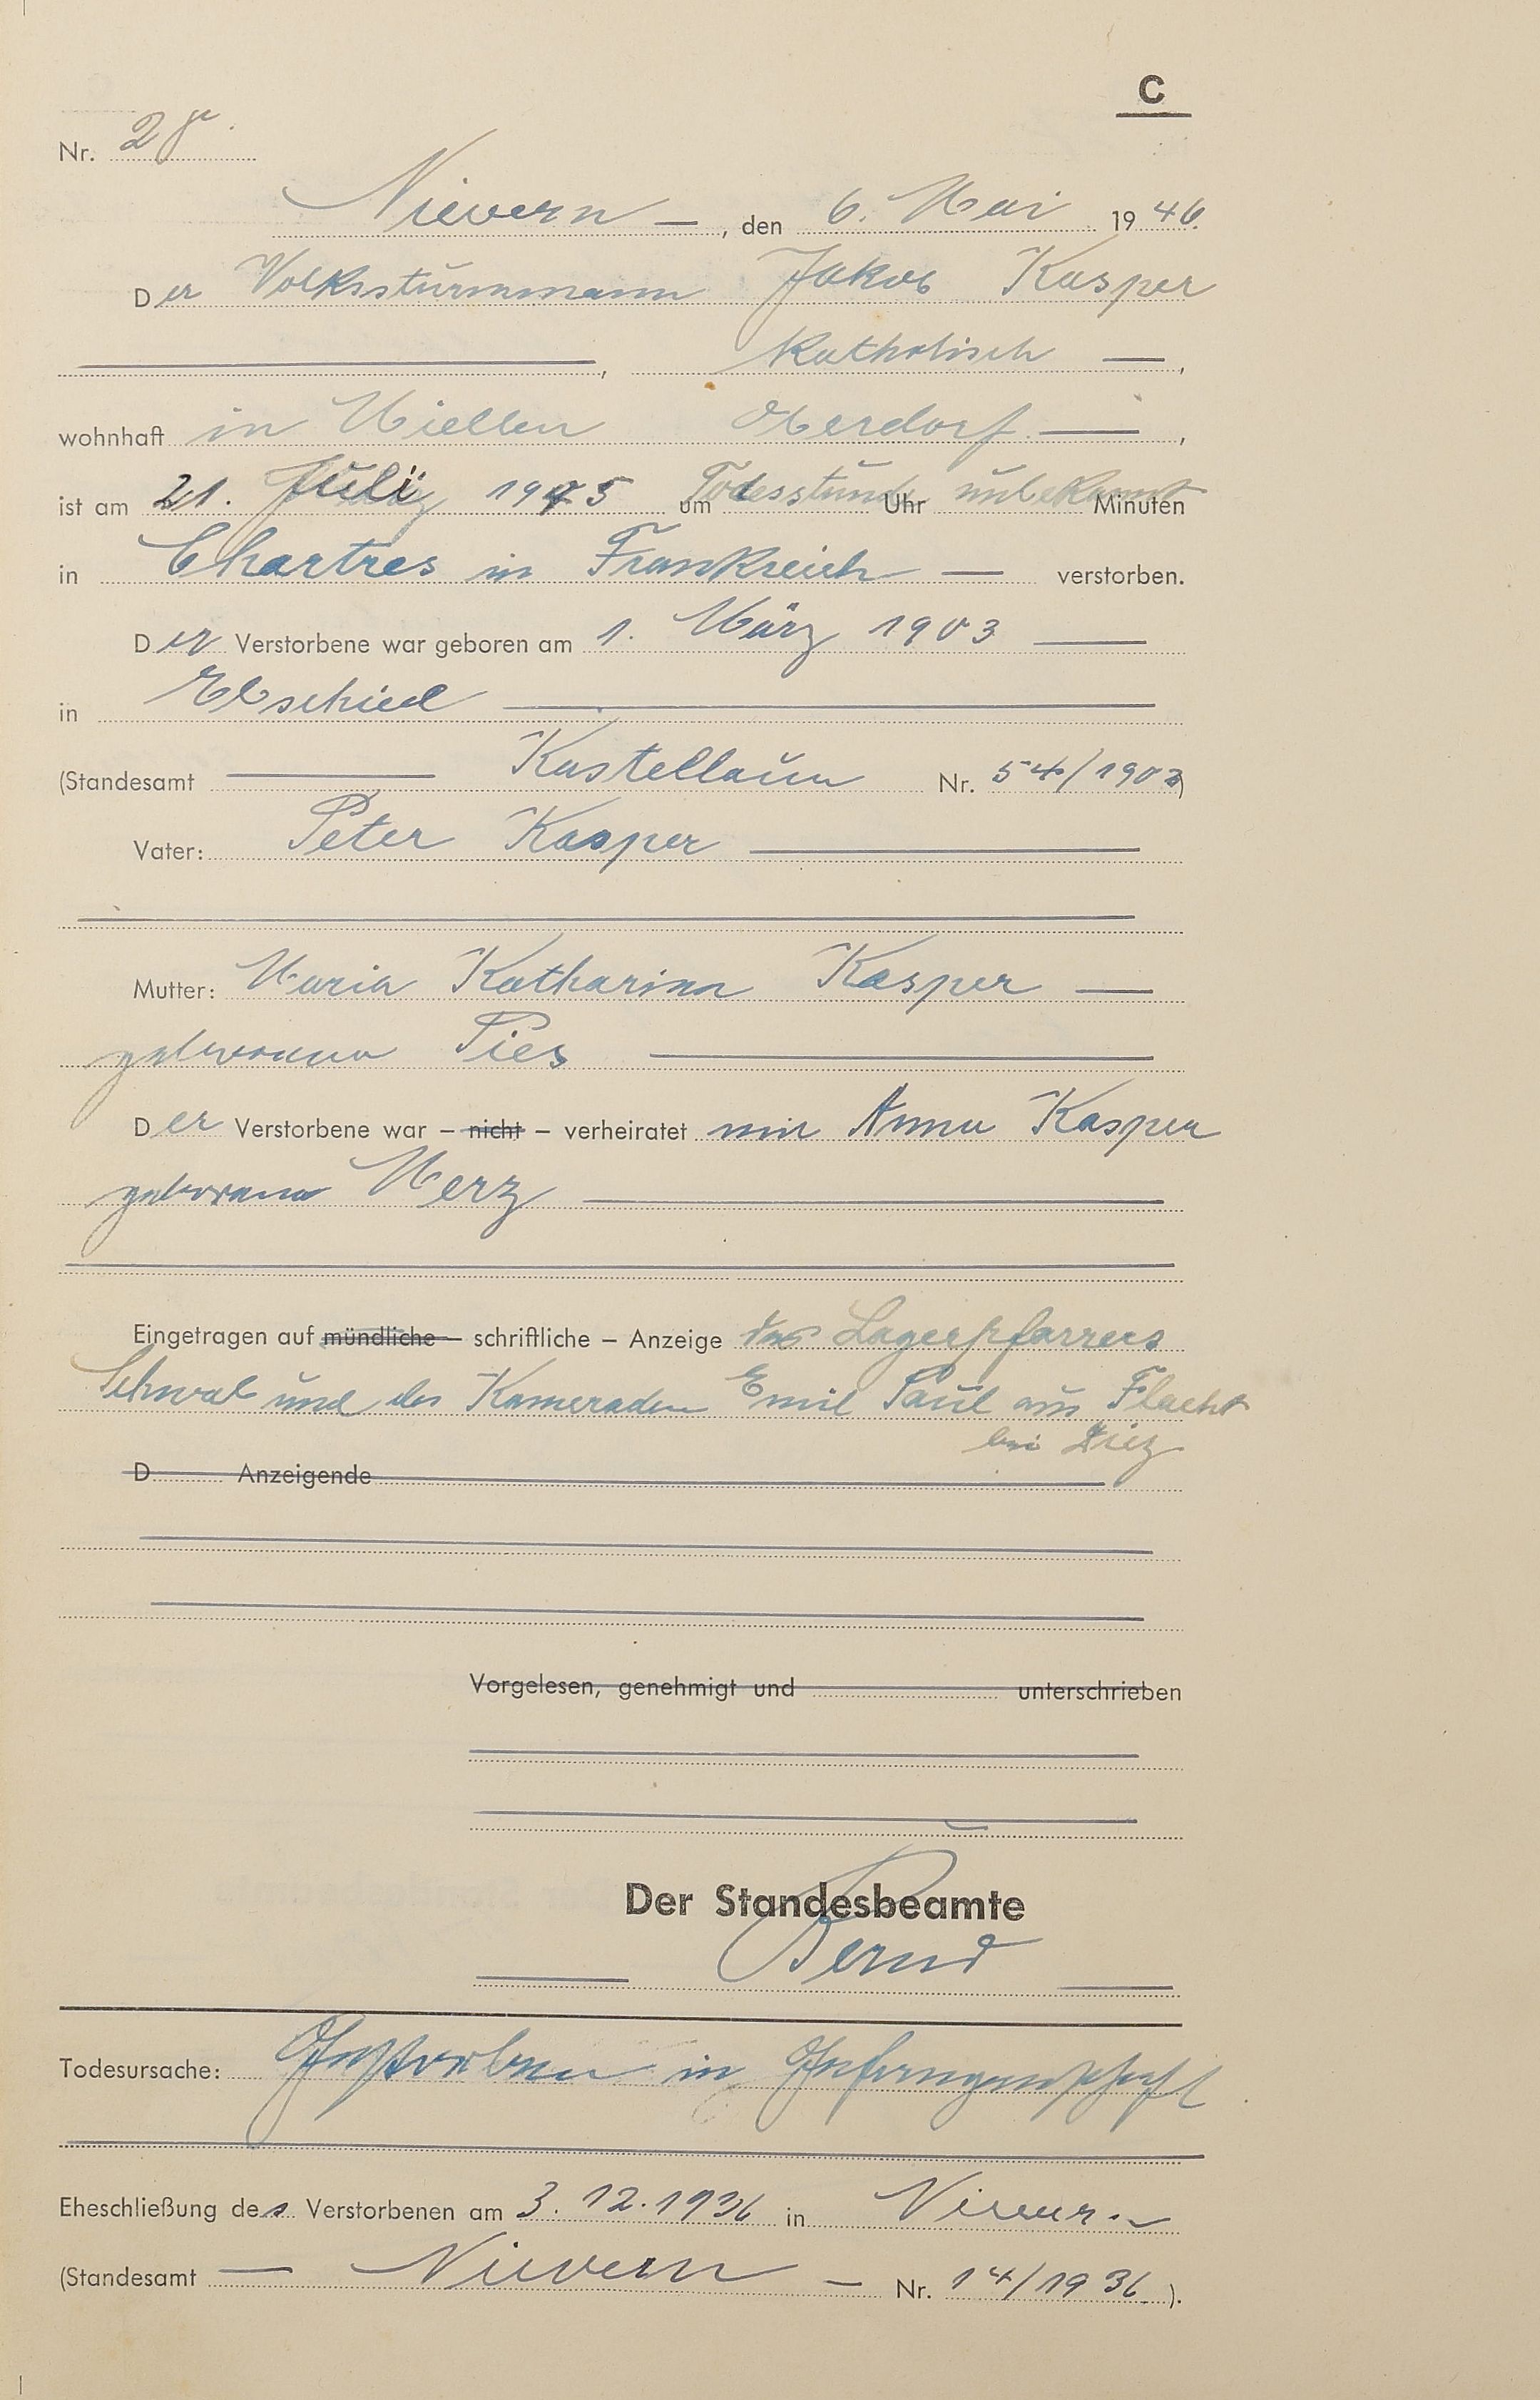 C
Nr. 28.
Nievern —, den 6. Mai 1946.
Der Volkssturmmann Jakob Kasper
, katholisch —,
wohnhaft in Miellen Oberdorf —,
ist am 21. Juli 1945 um Todesstunde Uhr unbekannt Minuten
in Chartres in Frankreich — verstorben.
Der Verstorbene war geboren am 1. März 1903 —
in Ebschied —
(Standesamt — Kastellaun Nr. 54/1903)
Vater: Peter Kasper —
Mutter: Maria Katharina Kasper —
geborene Pies —
Der Verstorbene war – nicht – verheiratet mit Anna Kasper
geborene Merz —
Eingetragen auf mündliche – schriftliche – Anzeige des Lagerpfarrers
Schwab und des Kameraden Emil Paul aus Flacht
bei Diez
D Anzeigende
Vorgelesen, genehmigt und unterschrieben
Der Standesbeamte
Bernd
Todesursache: Gestorben in Gefangenschaft
Eheschließung des Verstorbenen am 3.12.1936 in Nievern
(Standesamt — Nievern — Nr. 14/1936).